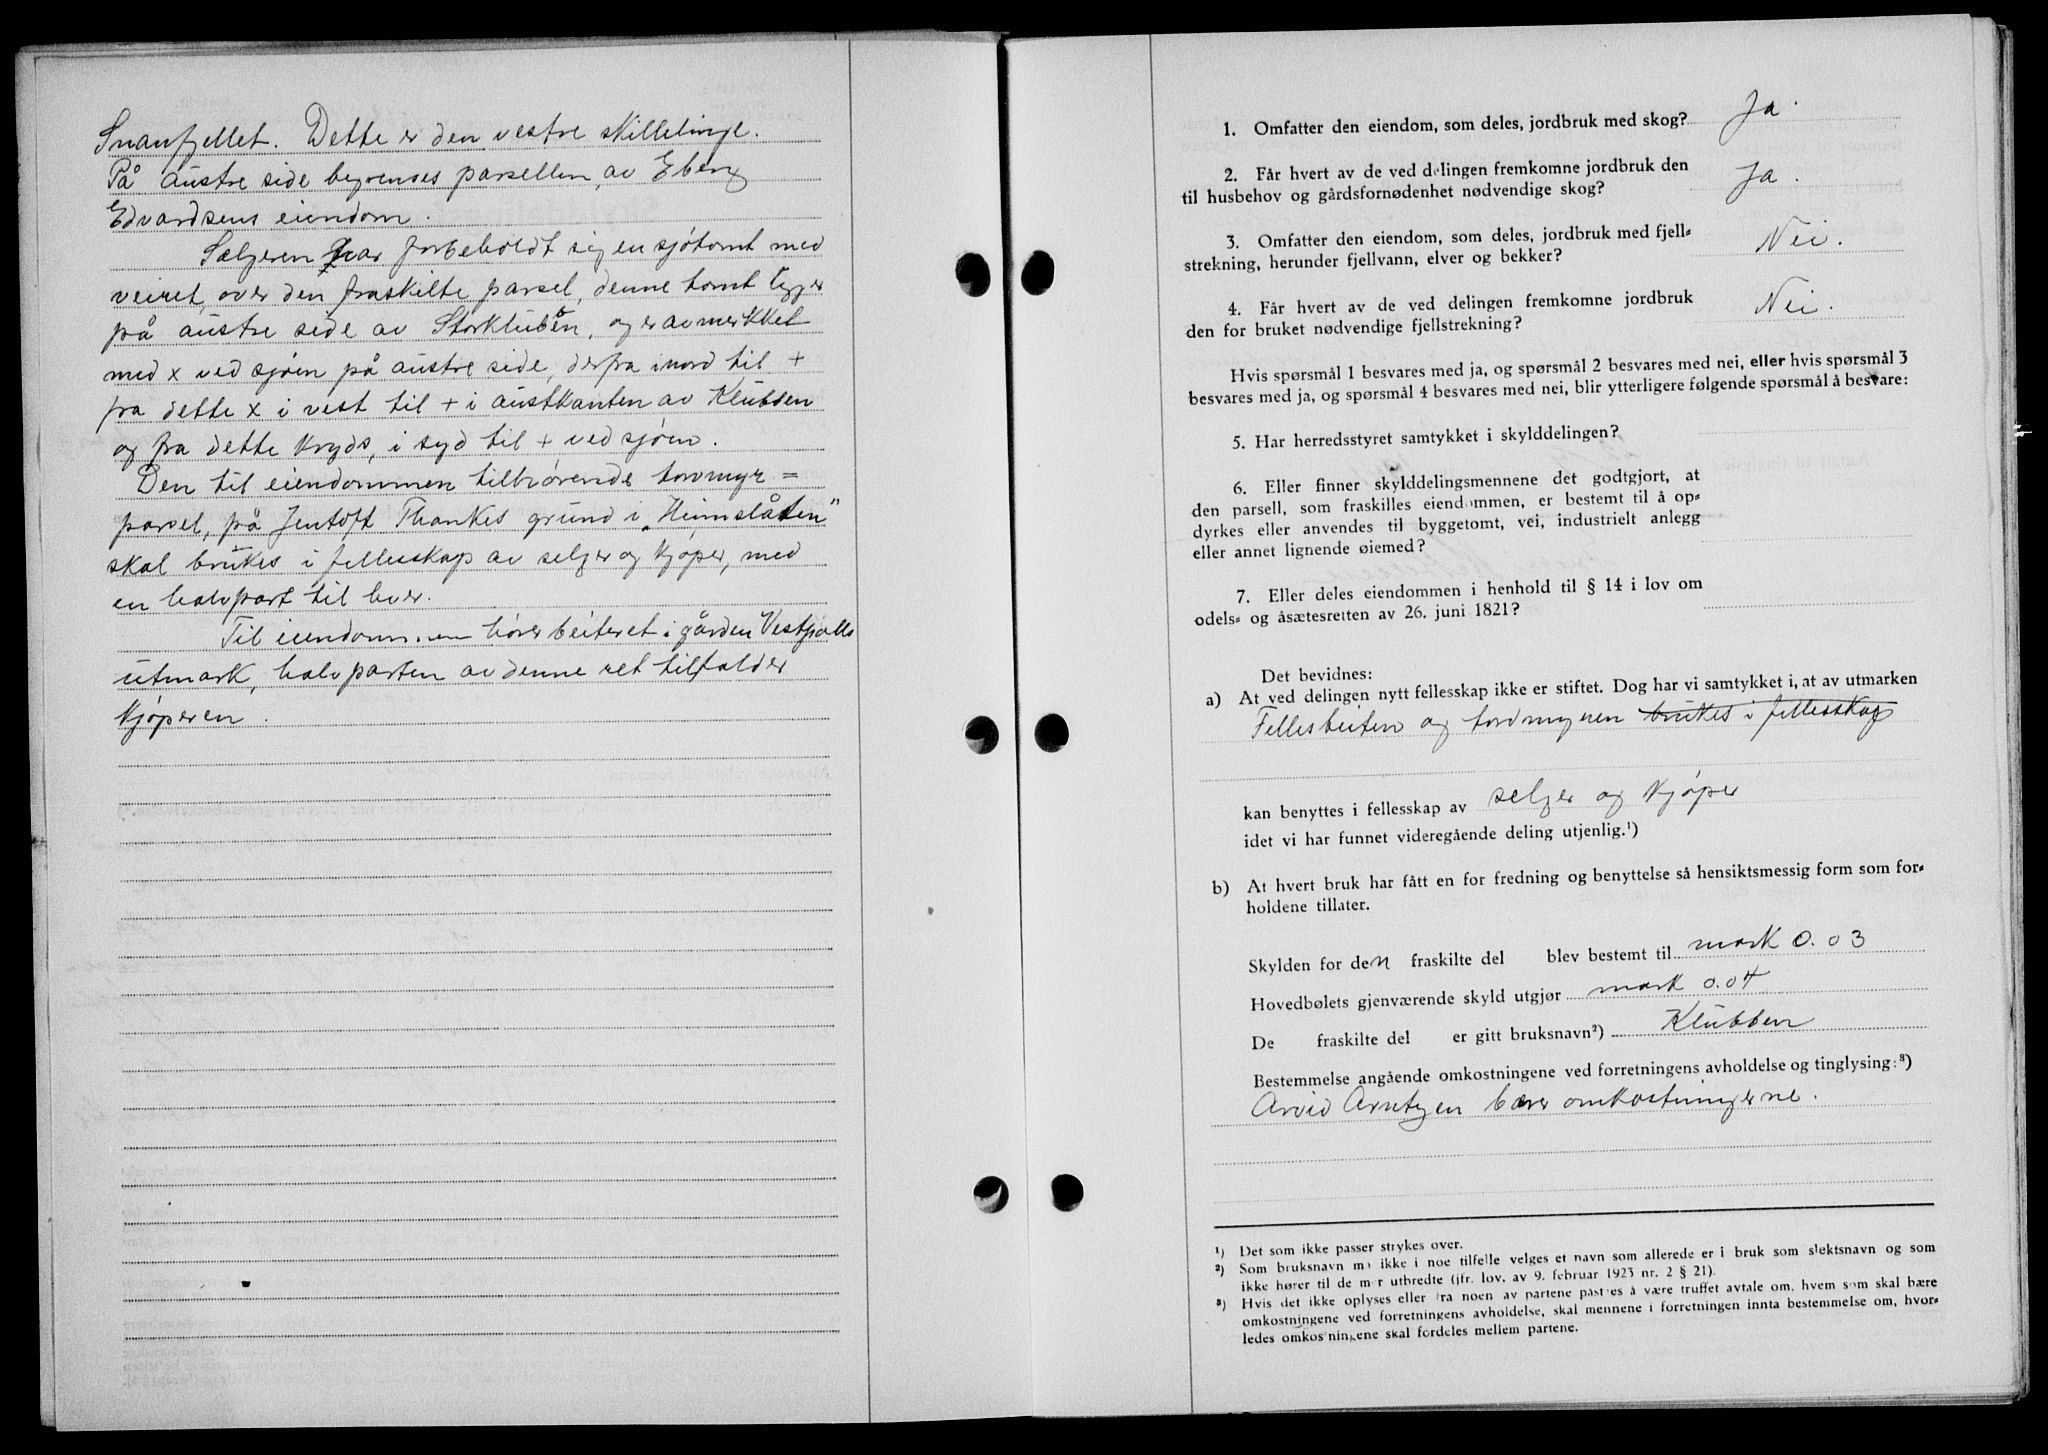 Snaufjellet. Dette er den vestre skillelinje.
På austre side begrenses parsellen av Eberg
Edvardsens eiendom.
Sælgeren har forbeholdt sig en sjøtomt med
veiret over den fraskilte parsel, denne tomt ligger
på austre side av Storklubben, og er avmerkket
med x ved sjøen på austre side, derfra i nord til +
fra dette x i vest til + i austkanten av Klubben
og fra dette kryds, i syd til + ved sjøen.
Den til eiendommen tilhørende torvmyr=
parsel, på Jentoft Thankes grund i „Heimslåtten"
skal brukes i fellesskap av selger og kjøper, med
en halvpart til hver.
Til eiendommen hører beiteret i gården Vestpolls
utmark, halvparten av denne ret tilfalder
kjøperen.
1. Omfatter den eiendom, som deles, jordbruk med skog? Ja.
2. Får hvert av de ved delingen fremkomne jordbruk den
til husbehov og gårdsfornødenhet nødvendige skog? Ja.
3. Omfatter den eiendom, som deles, jordbruk med fjell=
strekning, herunder fjellvann, elver og bekker? Nei.
4. Får hvert av de ved delingen fremkomne jordbruk
den for bruket nødvendige fjellstrekning? Nei.
Hvis spørsmål 1 besvares med ja, og spørsmål 2 besvares med nei, eller hvis spørsmål 3
besvares med ja, og spørsmål 4 besvares med nei, blir ytterligere følgende spørsmål å besvare:
5. Har herredsstyret samtykket i skylddelingen?
6. Eller finner skylddelingsmennene det godtgjort, at
den parsell, som fraskilles eiendommen, er bestemt til å op=
dyrkes eller anvendes til byggetomt, vei, industrielt anlegg
eller annet lignende øiemed?
7. Eller deles eiendommen i henhold til § 14 i lov om
odels= og åsætesretten av 26. juni 1821?
Det bevidnes:
a) At ved delingen nytt fellesskap ikke er stiftet. Dog har vi samtykket i, at av utmarken
Fellesbeiten og tordmyren brukes i fellesskap
kan benyttes i fellesskap av selger og kjøper
idet vi har funnet videregående deling utjenlig.¹)
b) At hvert bruk har fått en for fredning og benyttelse så hensiktsmessig form som for=
holdene tillater.
Skylden for den fraskilte del blev bestemt til mark 0.03
Hovedbølets gjenværende skyld utgjør mark 0.04
De fraskilte del er gitt bruksnavn²) Klubben
Bestemmelse angående omkostningene ved forretningens avholdelse og tinglysing:³)
Arvid Arntzen bærer omkostningerne.
¹) Det som ikke passer strykes over.
²) Som bruksnavn må ikke i noe tilfelle velges et navn som allerede er i bruk som slektsnavn og som
ikke hører til de mer utbredte (jfr. lov. av 9. februar 1923 nr. 2 § 21).
³) Hvis det ikke oplyses eller fra noen av partene påstås å være truffet avtale om, hvem som skal bære
omkostningene ved forretningens avholdelse, skal mennene i forretningen innta bestemmelse om, hvor=
ledes omkostningene skal fordeles mellem partene.